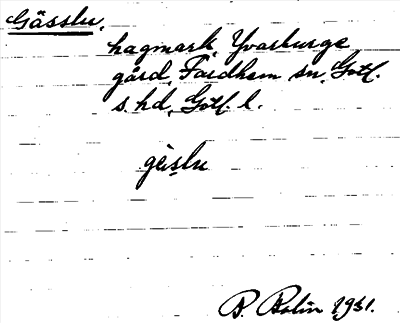 Gässlu.
hagmark, Yvarburge
gård, Fardhem sn, Gotl.
s. hd, Gotl. l.
gäslu
B. Bolin 1931.